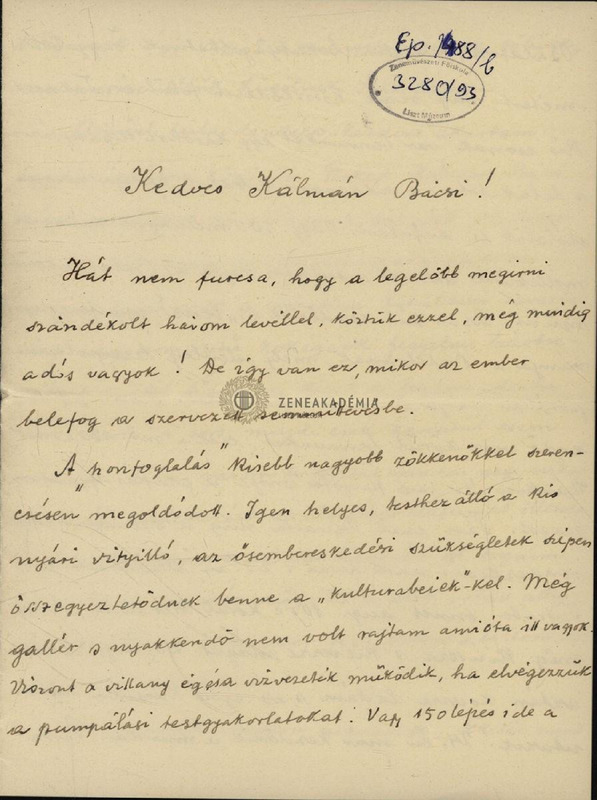 Ep. 1488/b
Zeneművészeti Főiskola
3280/93
Liszt Múzeum
Kedves Kálmán Bácsi!
Hát nem furcsa, hogy a legelőbb megirni
szándékolt három levéllel, köztük ezzel, még mindig
adós vagyok! De így van ez, mikor az ember
belefog a szervezett semmitevésbe.
ZENEAKADÉMIA
A "honfoglalás" kisebb nagyobb zökkenőkkel szeren-
csésen megoldódott. Igen helyes, testhez álló a kis
nyári vityilló, az ősembereskedési szükségletek szépen
összegyeztetődnek benne a „kulturabeiek"-kel. Még
gallér s nyakkendő nem volt rajtam amióta itt vagyok.
Viszont a villany ég és a vizvezeték működik, ha elvégezzük
a pumpálási testgyakorlatokat. Vagy 150 lépés ide a